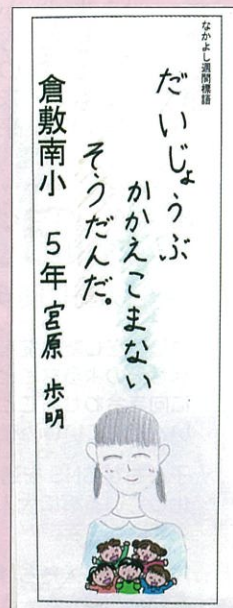 なかよし週間標語
だいじょうぶ
かかえこまない
そうだんだ。
倉敷南小　５年 宮原　歩明